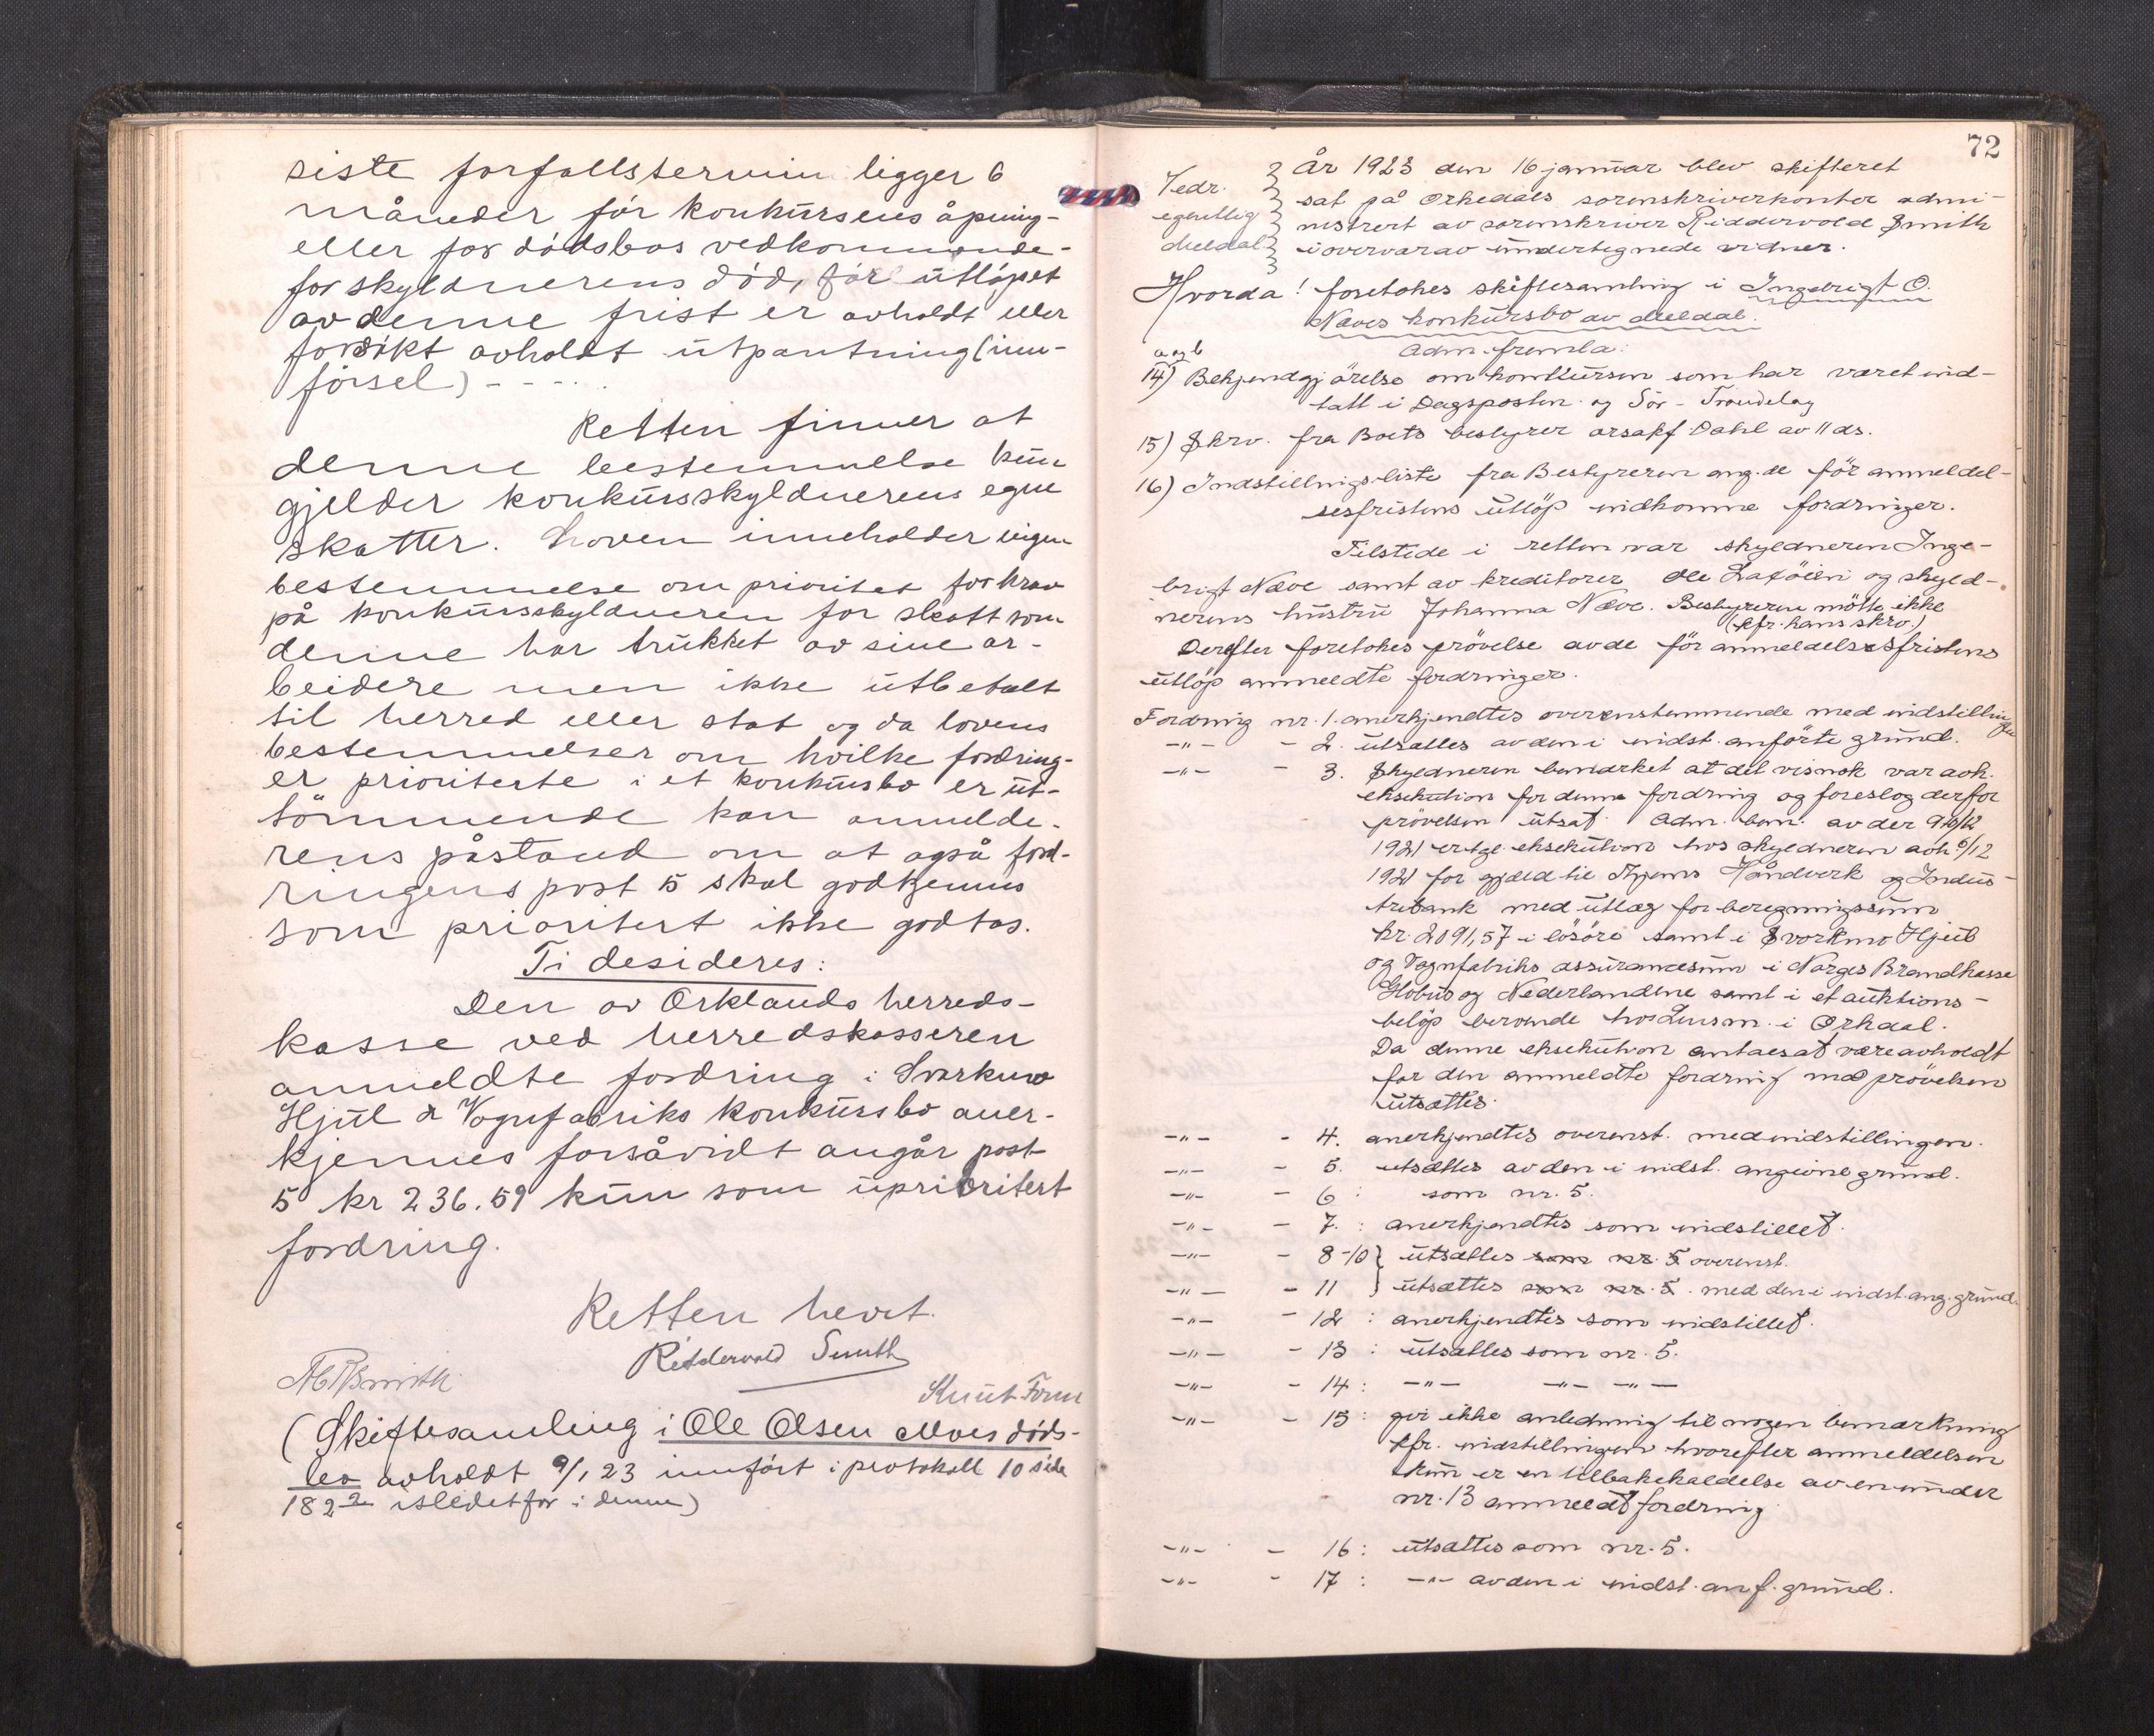 siste forfallstermin ligger 6
måneder før konkursens åpning -
eller for dødsbos vedkommende -
for skyldnerens död, før utløpet
av denne frist er avholdt eller
forsökt avholdt utpantning (inn-
försel) - - - - .
Retten finner at
denne bestemmelse kun
gjelder konkursskyldnerens egne
skatter. Loven inneholder ingen
bestemmelse om prioritet for krav
på konkursskyldneren for skatt som
denne har trukket av sine ar-
beidere men ikke utbetalt
til herred eller stat og da lovens
bestemmelser om hvilke fordring-
er prioriterte i et konkursbo er ut-
tömmende kan anmelde-
rens påstand om at også ford-
ringens post 5 skal godkjennes
som prioritert ikke godtas.
Ti desideres:
Den av Orklands herreds-
kasse ved herredskasseren
anmeldte fordring i Svorkmo
Hjul & Vognfabriks konkursbo aner-
kjennes forsåvidt angår post
5 kr 236.59 kun som uprioritert
fordring.
Retten hevet.
Riddervold Smith
Knut Form
(Skiftesamling i Ole Olsen Moes döds-
bo avholdt 9/1 23 innført i protokoll 10 side
182 istedetfor i denne)
72
Vedr.
egentlig
Meldal
År 1923 den 16 januar blev skifteret
sat på Orkedals sorenskriverkontor admi-
nistrert av sorenskriver Riddervold Smith
i overvær av undertegnede vidner.
Hvorda! foretokes skiftesamling i Ingebrigt O.
Næves konkursbo av Meldal.
Adm. fremla:
a og b
14) Bekjendtgjörelse om konkursen som har været ind-
tatt i Dagsposten og Sör-Trøndelag
15) Skrv. fra Boets bestyrer orsakf. Dahl av 11 ds.
16) Indstillingsliste fra Bestyreren ang. de för anmeldel-
sesfristens utlöp indkomne fordringer.
Tilstede i retten var skyldneren Inge-
brigt Næve samt av kreditorer Ole Laxöien og skyld-
nerens hustru Johanna Næve. Bestyreren mötte ikke
(kfr. hans skrv.)
Derefter foretokes prövelse av de för anmeldelsesfristens
utlöp anmeldte fordringer.
Fordring nr. 1. anerkjendtes overenstemmende med indstillingen
-"- - 2. utsattes av den i indst. anförte grund.
-"- - 3. Skyldneren bemærket at det visnok var avh.
eksekution for denne fordring og foreslog derfor
prövelsen utsat. Adm. bem. av der 9 10/12
1921 er tgl. eksekution hos skyldneren avh. 6/12
1921 for gjæld til Trjems Håndverk og Indus-
tribank med utlæg for beregningssum
kr. 2091,57 i lösöre samt i Svorkmo Hjul
og Vognfabriks assurancesum i Norges Brandkasse
Globus og Nederlandene samt i et auktions-
belöp beroende hos Lensm. i Orkdal.
Da denne eksekution antaes at være avholdt
for den anmeldte fordring må prövelsen
utsættes.
-"- - 4. anerkjendtes overenst. med indstillingen.
-"- - 5. utsattes av den i indst. angivne grund.
-"- - 6 : som nr. 5.
-"- - 7. : anerkjendtes som indstillet.
-"- - 8-10 } utsattes som nr. 5 overenst.
-"- - 11 } utsættes som nr. 5. med den i indst. ang. grund.
-"- - 12 : anerkjendtes som indstillet.
-"- - 13 : utsattes som nr. 5.
-"- - 14 : -"- -"- -"-
-"- - 15 : gir ikke anledning til nogen bemærkning
kfr. indstillingen hvorefter anmeldelsen
kun er en tilbakekaldelse av en under
nr. 13 anmeldt fordring
-"- - 16 : utsattes som nr. 5.
-"- - 17 : -"- av den i indst. anf. grund.